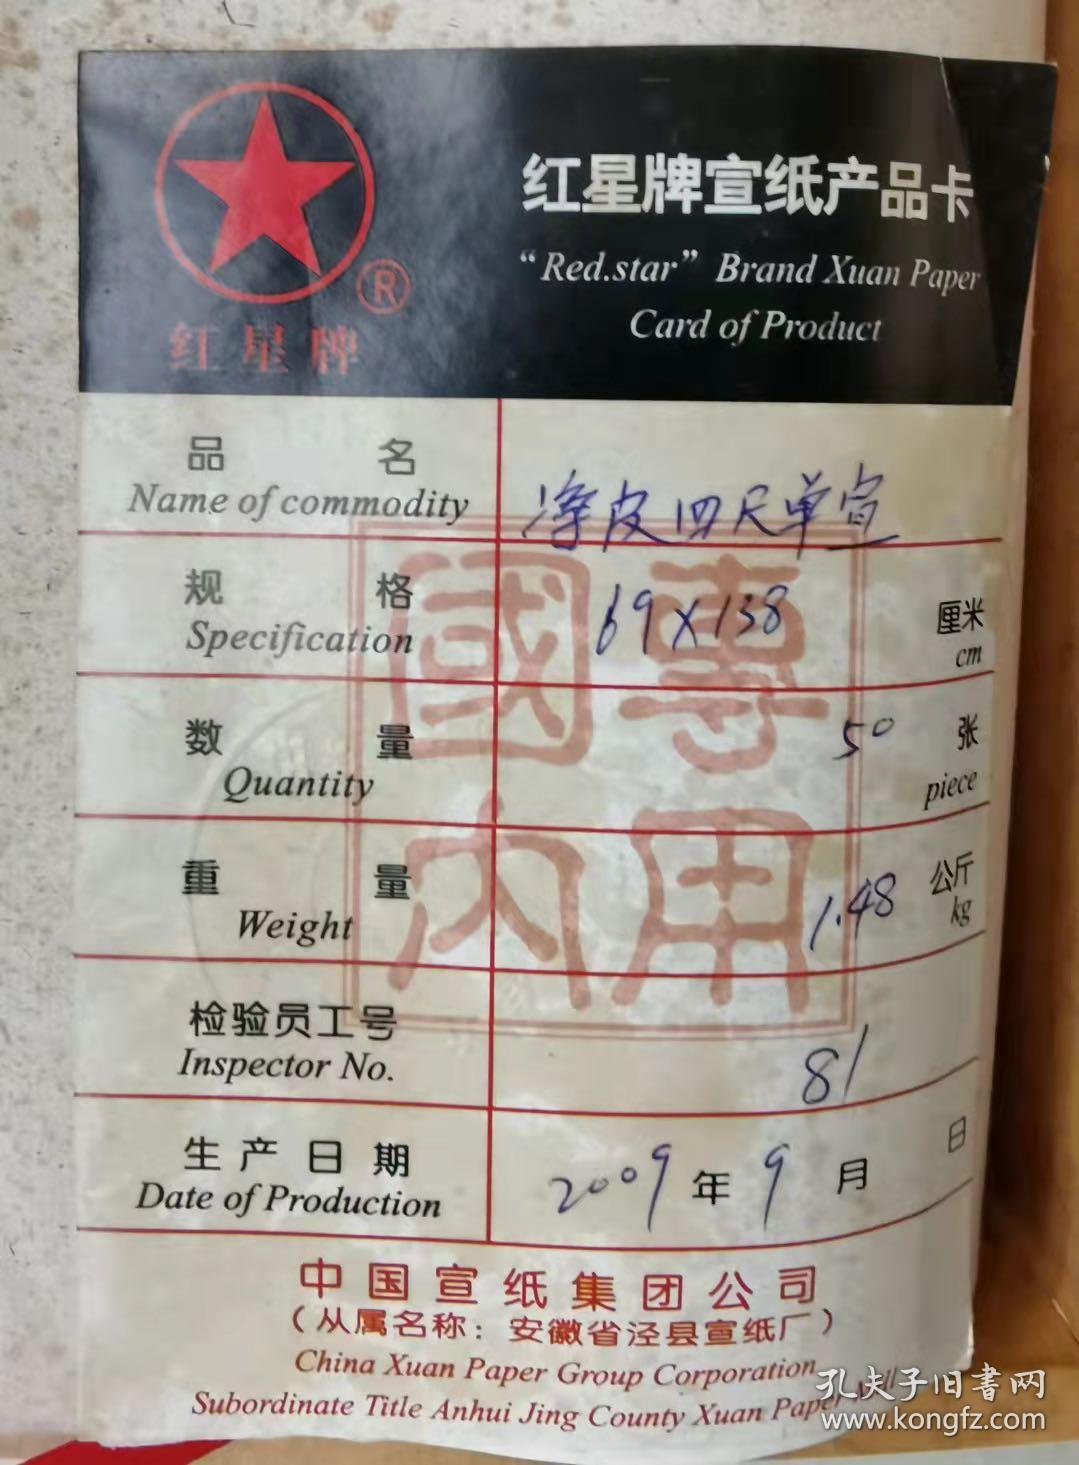 红星牌宣纸产品卡
“Red.star” Brand Xuan Paper
Card of Product
®
红星牌
品名
Name of commodity
净皮四尺单宣
规格
Specification
69×138
厘米
cm
数量
Quantity
50
张
piece
重量
Weight
1.48
公斤
kg
检验员工号
Inspector No.
81
生产日期
Date of Production
2009年9月日
國專
内用
中国宣纸集团公司
（从属名称：安徽省泾县宣纸厂）
China Xuan Paper Group Corporation
Subordinate Title Anhui Jing County Xuan Paper Mill
孔夫子旧書网
www.kongfz.com